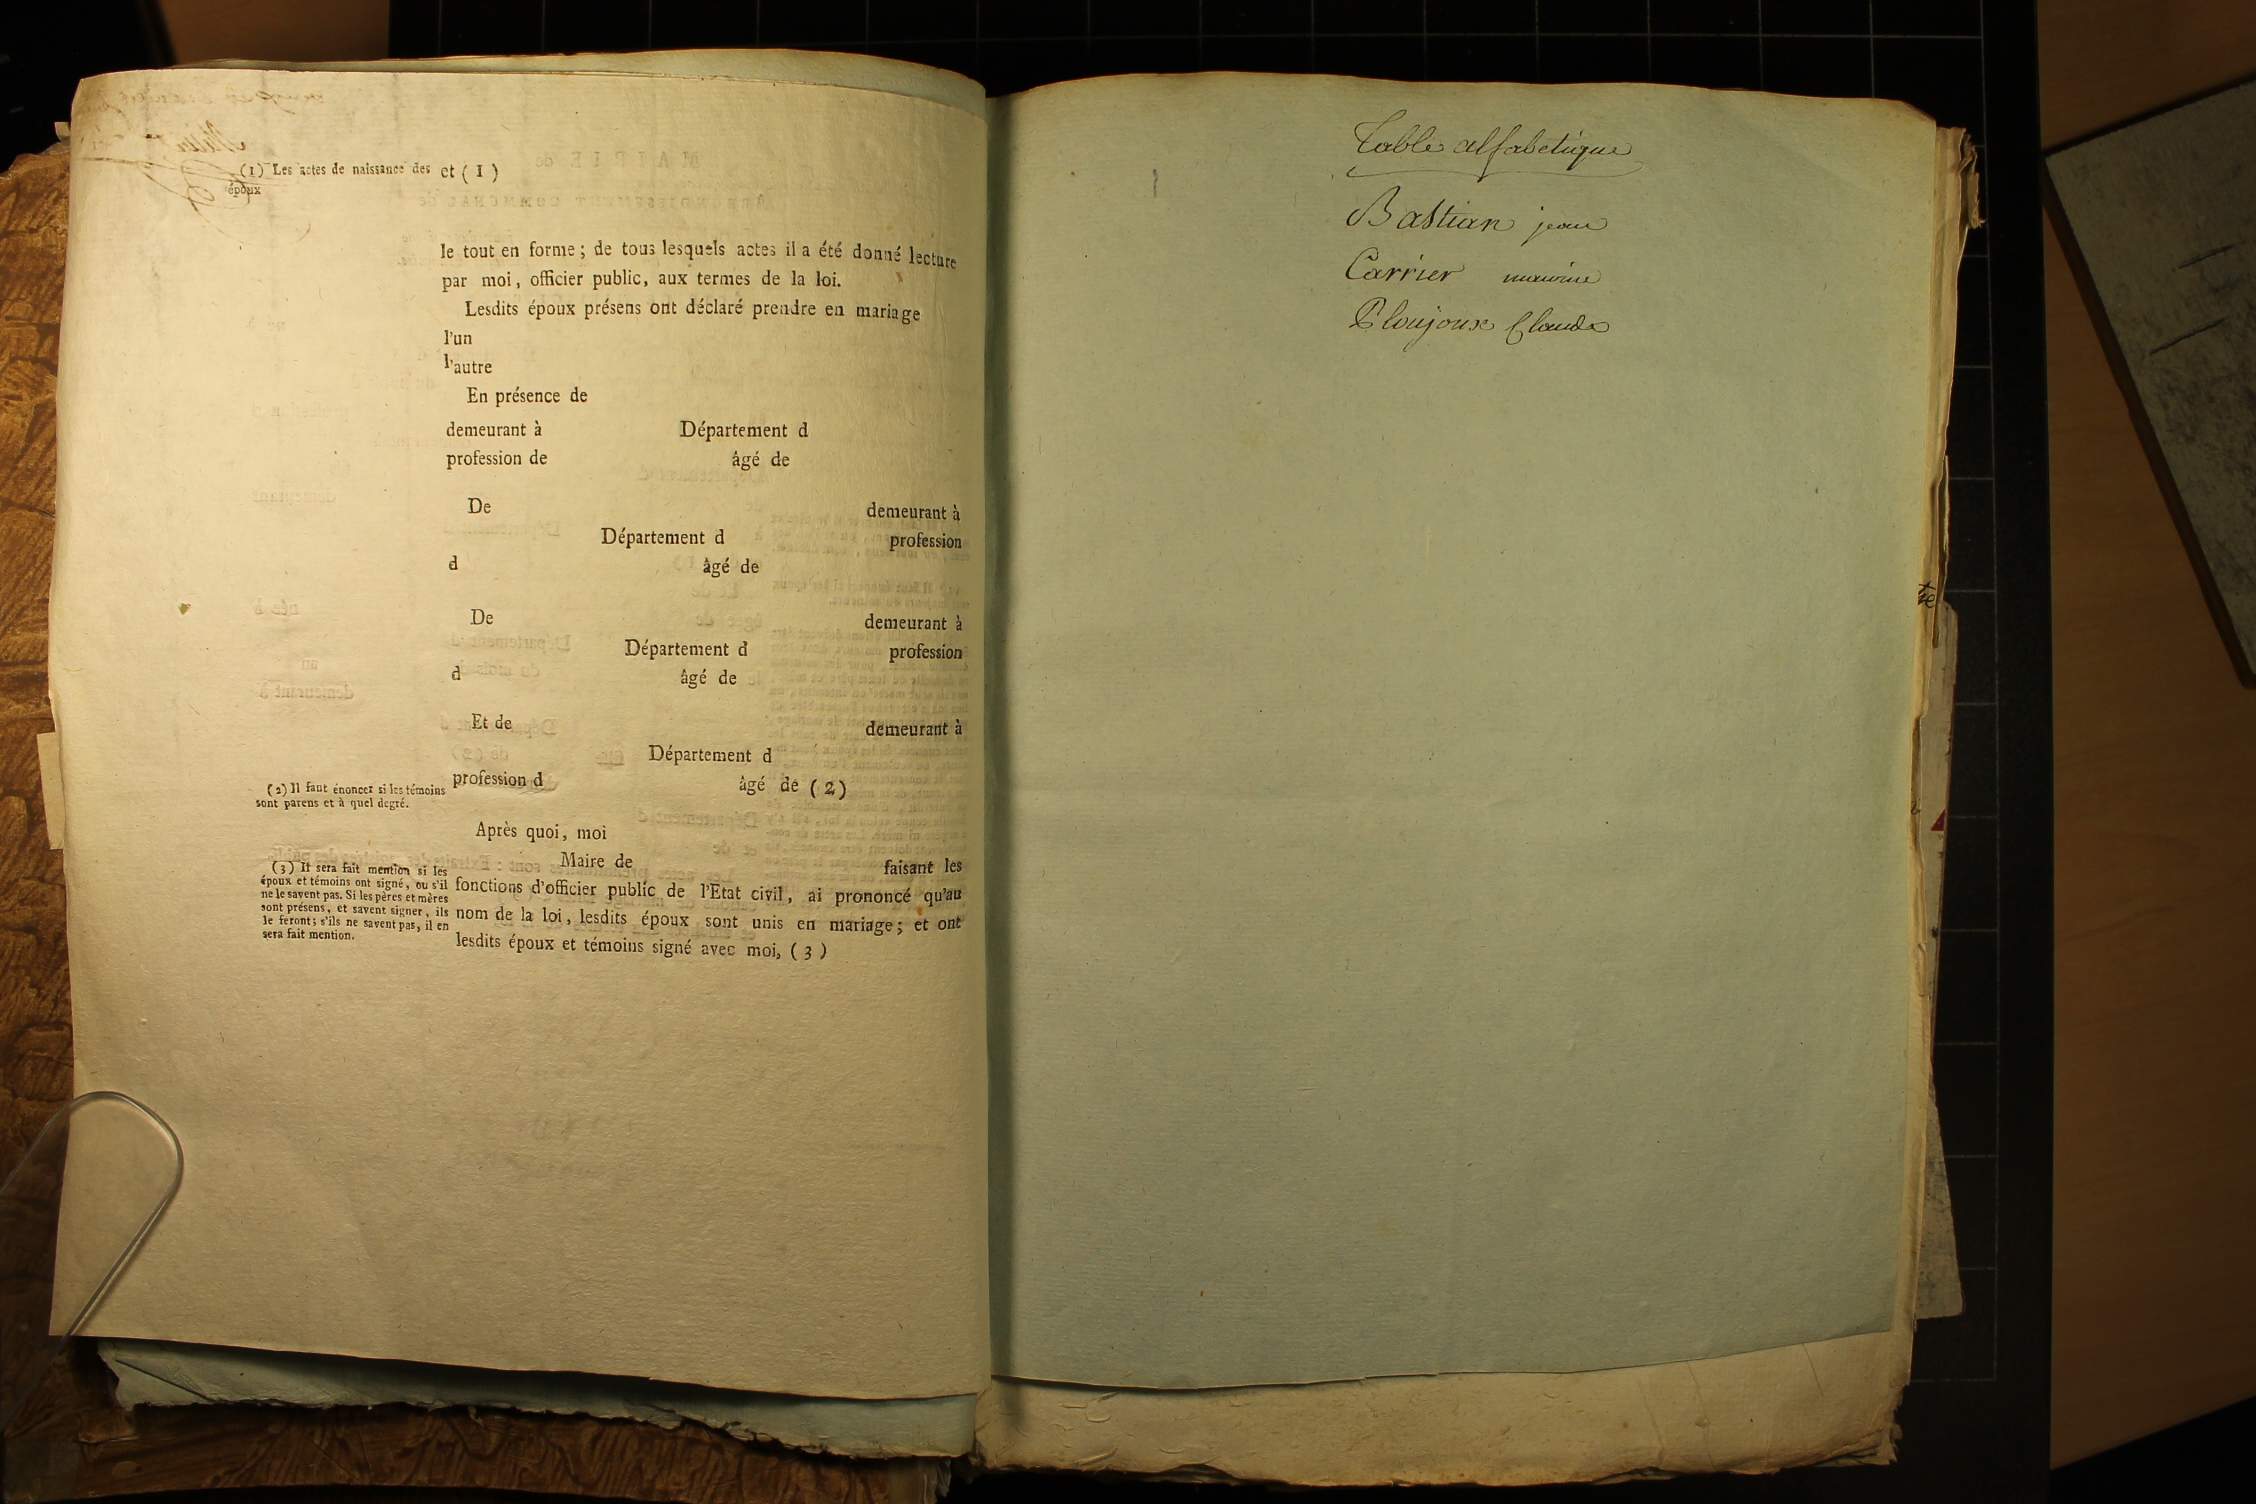 (1) Les actes de naissance des
époux
et ( 1 )
le tout en forme ; de tous lesquels actes il a été donné lecture
par moi, officier public, aux termes de la loi.
Lesdits époux présens ont déclaré prendre en mariage
l'un
l'autre
En présence de
demeurant à Département d
profession de âgé de
De demeurant à
Département d profession
d âgé de
De demeurant à
Département d profession
d âgé de
Et de demeurant à
Département d
profession d âgé de ( 2 )
(2) Il faut énoncer si les témoins
sont parens et à quel degré.
Après quoi, moi
Maire de faisant les
fonctions d'officier public de l'Etat civil, ai prononcé qu'au
nom de la loi, lesdits époux sont unis en mariage ; et ont
lesdits époux et témoins signé avec moi, ( 3 )
(3) Il sera fait mention si les
époux et témoins ont signé, ou s'il
ne le savent pas. Si les pères et mères
sont présens, et savent signer, ils
le feront ; s'ils ne savent pas, il en
sera fait mention.
Table alfabetique
Bastian jean
Carrier
Ploujoux Claude